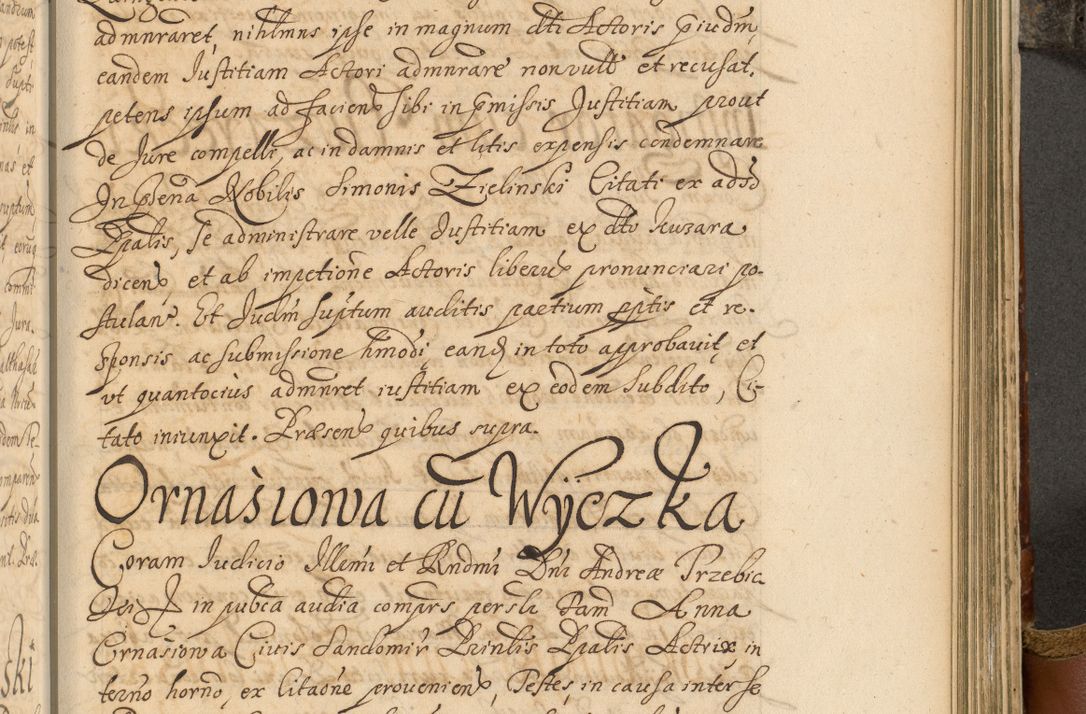 admnraret nihlmns ipse in magnum dti Actoris piudm,
eandem Justitiam Actori admnrare non vult et recusat.
petens ipsum ad faciend sibi in pmissis Justitiam prout
de Jure compelli, ac in damnis et litis expensis condemnare
In psena Nobilis Simonis Zielinski Citati ex adso
Ppalis, se administrare velle Justitiam ex dto Kuzara
dicens et ab impetione Actoris liberu pronunciari po-
stulans. Et Judm suptum auditis partium pptis et re-
sponsis ac submissione hmodi eand in toto approbavit et
ut quantocius admnret iustitiam ex eodem Subdito, Ci-
tato iniunxit. Præsen quibus supra.
Ornasiowa cu Wyczka
Coram Judicio Illmi et Rndmi Dni Andreæ Trzebic
Dei in pubca audia comprs persli Famd Anna
Ornasiowa Civis Sandomir Prinlis Ppalis Actrix in
termo horno, ex litaone provenien, Testes in causa inter se